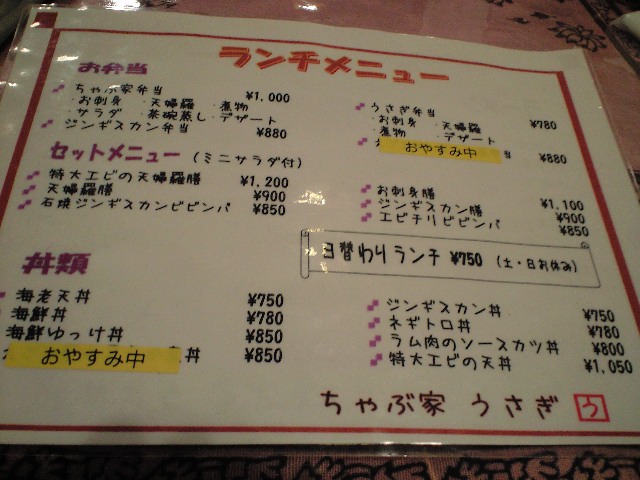 ランチメニュー
お弁当
ちゃぶ家弁当 ¥1,000
・お刺身 ・天婦羅 ・煮物
・サラダ ・茶碗蒸し・デザート
ジンギスカン弁当 ¥880
うさぎ弁当 ¥780
・お刺身 ・天婦羅
・煮物 ・デザート
おやすみ中 当 ¥880
セットメニュー（ミニサラダ付）
特大エビの天婦羅膳 ¥1,200
天婦羅膳 ¥900
石焼ジンギスカンビビンバ ¥850
お刺身膳 ¥1,100
ジンギスカン膳 ¥900
エビチリビビンバ ¥850
日替わりランチ ¥750 （土・日お休み）
丼類
海老天丼 ¥750
海鮮丼 ¥780
海鮮ゆっけ丼 ¥850
おやすみ中 丼 ¥850
ジンギスカン丼 ¥750
ネギトロ丼 ¥780
ラム肉のソースカツ丼 ¥800
特大エビの天丼 ¥1,050
ちゃぶ家 うさぎ う